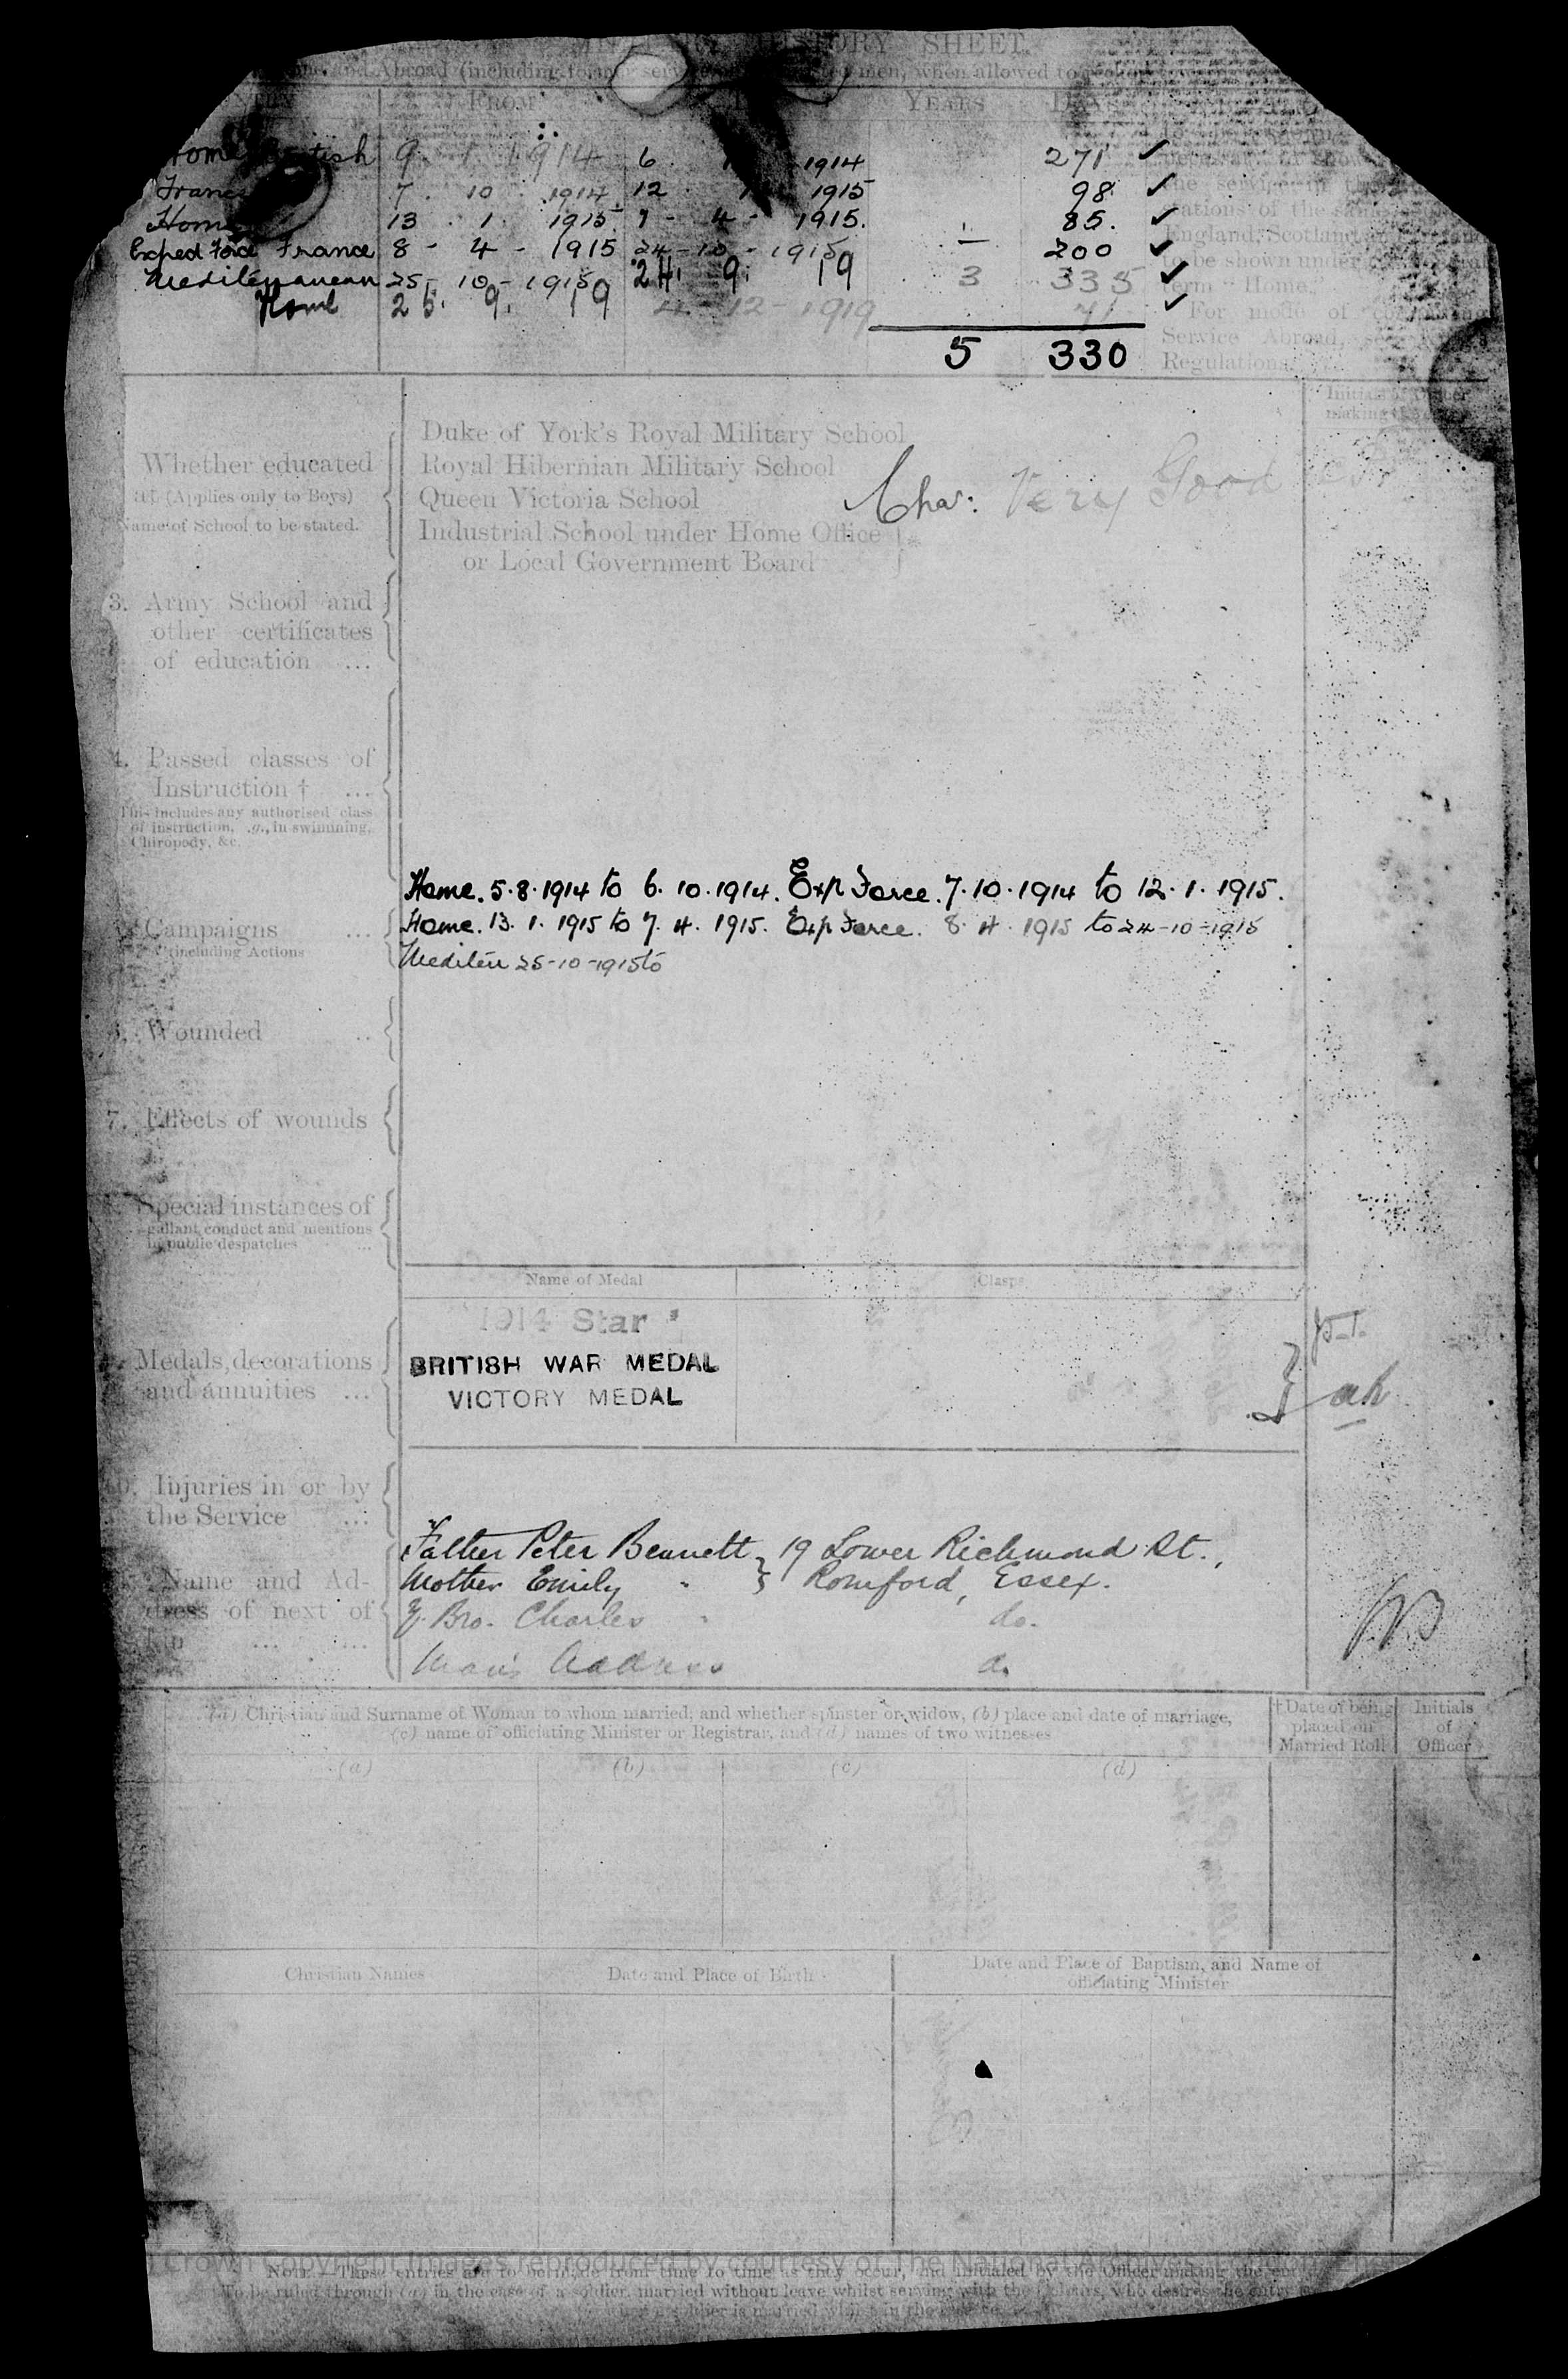 HISTORY SHEET.
and Abroad (including former men, when allowed to
FROM YEARS DAYS
Home British 9 . 1 . 1914 6 1914 271 ✓
7 . 10 . 1914 12 1915 98 ✓
Home 13 . 1 . 1915 7 - 4 - 1915. 85. ✓
Exped Force France 8 - 4 - 1915 24-10-1915 — 200 ✓
Mediterranean 25-10-1915 24. 9. 19 3 335 ✓
Home 25. 9. 19 4-12-1919 71 ✓
5 330
the service in the
stations of the same
England, Scotland
to be shown under
term "Home."
For mode of
Service Abroad,
Regulations
Whether educated
at (Applies only to Boys)
Name of School to be stated.
Duke of York's Royal Military School
Royal Hibernian Military School
Queen Victoria School
Industrial School under Home Office
or Local Government Board
Char: Very Good
3. Army School and
other certificates
of education ...
4. Passed classes of
Instruction † ...
This includes any authorised class
of instruction, .g., in swimming,
Chiropody, &c.
Campaigns ...
(including Actions
Home. 5.8.1914 to 6.10.1914. Exp Force. 7.10.1914 to 12.1.1915.
Home. 13.1.1915 to 7.4.1915. Exp Force. 8.4.1915 to 24-10-1915
Mediterr 25-10-1915 to
Wounded ..
7. Effects of wounds
Special instances of
gallant conduct and mentions
in public despatches ...
Name of Medal Clasps
Medals, decorations
and annuities ...
1914 Star
BRITISH WAR MEDAL
VICTORY MEDAL
Injuries in or by
the Service ...
Name and Ad-
dress of next of
kin ... ...
Father Peter Bennett } 19 Lower Richmond St.,
Mother Emily " } Romford, Essex.
Y. Bro. Charles " do.
Man's Address do.
(a) Christian and Surname of Woman to whom married, and whether spinster or widow, (b) place and date of marriage,
(c) name of officiating Minister or Registrar, and (d) names of two witnesses
†Date of being
placed on
Married Roll
Initials
of
Officer
(a) (b) (c) (d)
Christian Names Date and Place of Birth Date and Place of Baptism, and Name of
officiating Minister
Crown Copyright Images reproduced by courtesy of The National Archives,
NOTE.—These entries are to be made from time to time as they occur, and initialed by the Officer making the
To be ruled through (a) in the case of a soldier married without leave whilst serving with the Colours, who desires the entry